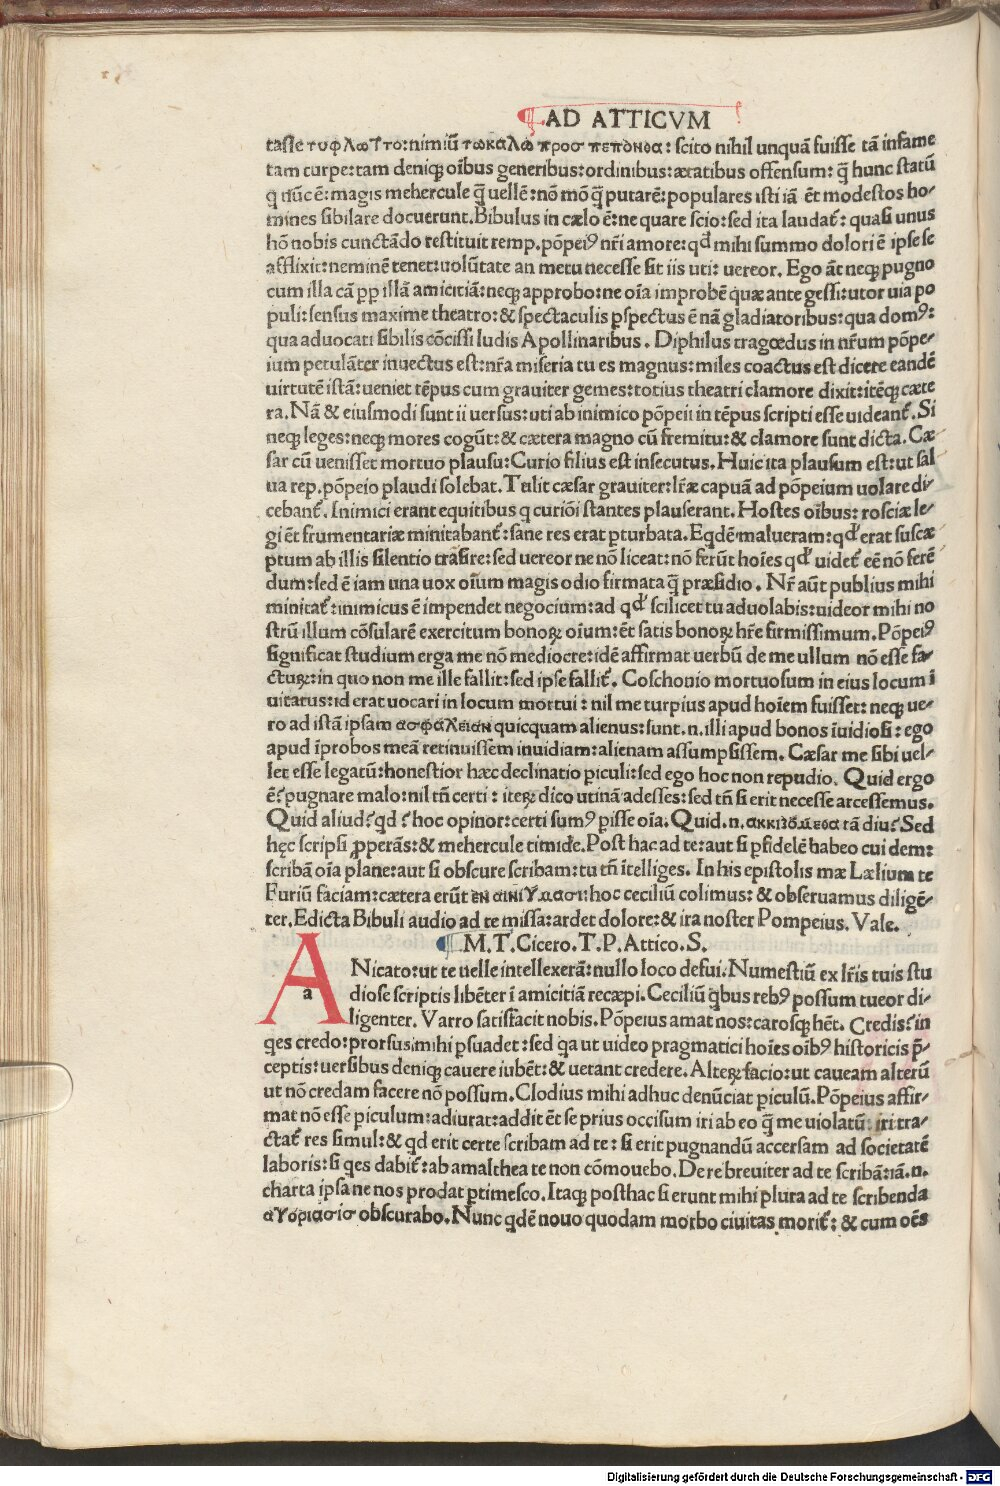 AD ATTICVM
tasse τυφλωττο: nimiū τωκαλω προσ πεπονθα: scito nihil unquā fuisse tā infame
tam turpe: tam deniqꝫ oībus generibus: ordinibus: ætatibus offensum: q̄ hunc statū
q nūc ē: magis mehercule q̄ uellē: nō mō q̄ putarē: populares isti iā ēt modestos ho-
mines sibilare docuerunt. Bibulus in cælo ē: ne quare scio: sed ita laudat᷑: quasi unus
hō nobis cunctādo restituit remp. pōpeiꝰ nr̄i amore: qđ mihi summo dolori ē ipse se
afflixit: neminē tenet: uolūtate an metu necesse sit iis uti: uereor. Ego āt neqꝫ pugno
cum illa cā pp illā amicitiā: neqꝫ approbo: ne oīa improbē quæ ante gessi: utor uia po
puli: sensus maxime theatro: & spectaculis ꝑspectus ē nā gladiatoribus: qua domꝰ:
qua aduocati sibilis cōcissi ludis Apollinaribus. Diphilus tragœdus in nr̄um pōpe-
ium petulāter inuectus est: nr̄a miseria tu es magnus: miles coactus est dicere eandē
uirtutē istā: ueniet tēpus cum grauiter gemes: totius theatri clamore dixit: itēqꝫ cæte
ra. Nā & eiusmodi sunt ii uersus: uti ab inimico pōpeii in tēpus scripti esse uideant᷑. Si
neqꝫ leges: neqꝫ mores cogūt: & cætera magno cū fremitu: & clamore sunt dicta. Cæ
sar cū uenisset mortuo plausu: Curio filius est insecutus. Huic ita plausum est: ut sal
ua rep. pōpeio plaudi solebat. Tulit cæsar grauiter: lr̄æ capuā ad pōpeium uolare di-
cebant᷑. Inimici erant equitibus q curiōi stantes plauserant. Hostes oībus: rosciæ le-
gi ēt frumentariæ minitabant᷑: sane res erat ꝑturbata. Eqdē malueram: qđ erat suscæ
ptum ab illis silentio trāsire: sed uereor ne nō liceat: nō ferūt hoīes qđ uidet᷑ eē nō ferē
dum: sed ē iam una uox oīum magis odio firmata q̄ præsidio. Nr̄ aūt publius mihi
minitat᷑: inimicus ē impendet negocium: ad qđ scilicet tu aduolabis: uideor mihi no
strū illum cōsularē exercitum bonoꝝ oīum: ēt satis bonoꝝ hr̄e firmissimum. Pōpeiꝰ
significat studium erga me nō mediocre: idē affirmat uerbū de me ullum nō esse fa-
ctuꝝ: in quo non me ille fallit: sed ipse fallit᷑. Coschonio mortuosum in eius locum ī
uitatus: id erat uocari in locum mortui: nil me turpius apud hoīem fuisset: neqꝫ ue-
ro ad istā ipsam ασφαλειαν quicquam alienus: sunt .n. illi apud bonos īuidiosi: ego
apud īprobos meā retinuissem inuidiam: alienam assumpsissem. Cæsar me sibi uel-
let esse legatū: honestior hæc declinatio ꝑiculi: sed ego hoc non repudio. Quid ergo
ē? pugnare malo: nil tn̄ certi: iteꝝ dico utinā adesses: sed tn̄ si erit necesse arcessemus.
Quid aliud? qd? hoc opinor: certi sumꝰ ꝑisse oīa. Quid .n. ακκιζομεθα tā diu? Sed
hęc scripsi ꝓperās: & mehercule timide. Post hac ad te: aut si ꝑfidelē habeo cui dem:
scribā oīa plane: aut si obscure scribam: tu tn̄ ītelliges. In his epistolis mæ Lælium te
Furiū faciam: cætera erūt εν αινιγμασι: hoc ceciliū colimus: & obseruamus diligē-
ter. Edicta Bibuli audio ad te missa: ardet dolore: & ira noster Pompeius. Vale.
M. T. Cicero. T. P. Attico. S.
A a Nicato: ut te uelle intellexerā: nullo loco defui. Numestiū ex lr̄is tuis stu
diose scriptis libēter ī amicitiā recæpi. Ceciliū qbus rebꝰ possum tueor di-
ligenter. Varro satisfacit nobis. Pōpeius amat nos: carosqꝫ hēt. Credis? in
qes credo: prorsus: mihi ꝑsuadet: sed qa ut uideo pragmatici hoīes oībꝰ historicis p̄-
ceptis: uersibus deniqꝫ cauere iubēt: & uetant credere. Alteꝝ facio: ut caueam alterū
ut nō credam facere nō possum. Clodius mihi adhuc denūciat ꝑiculū. Pōpeius affir-
mat nō esse ꝑiculum: adiurat: addit ēt se prius occisum iri ab eo q̄ me uiolatū iri tra-
ctat᷑ res simul: & qđ erit certe scribam ad te: si erit pugnandū accersam ad societatē
laboris: si qes dabit᷑: ab amalthea te non cōmouebo. De re breuiter ad te scribā: iā .n.
charta ipsa ne nos prodat ꝑtimesco. Itaqꝫ posthac si erunt mihi plura ad te scribenda
αγοριασισ obscurabo. Nunc qdē nouo quodam morbo ciuitas morit᷑: & cum oēs
Digitalisierung gefördert durch die Deutsche Forschungsgemeinschaft - DFG